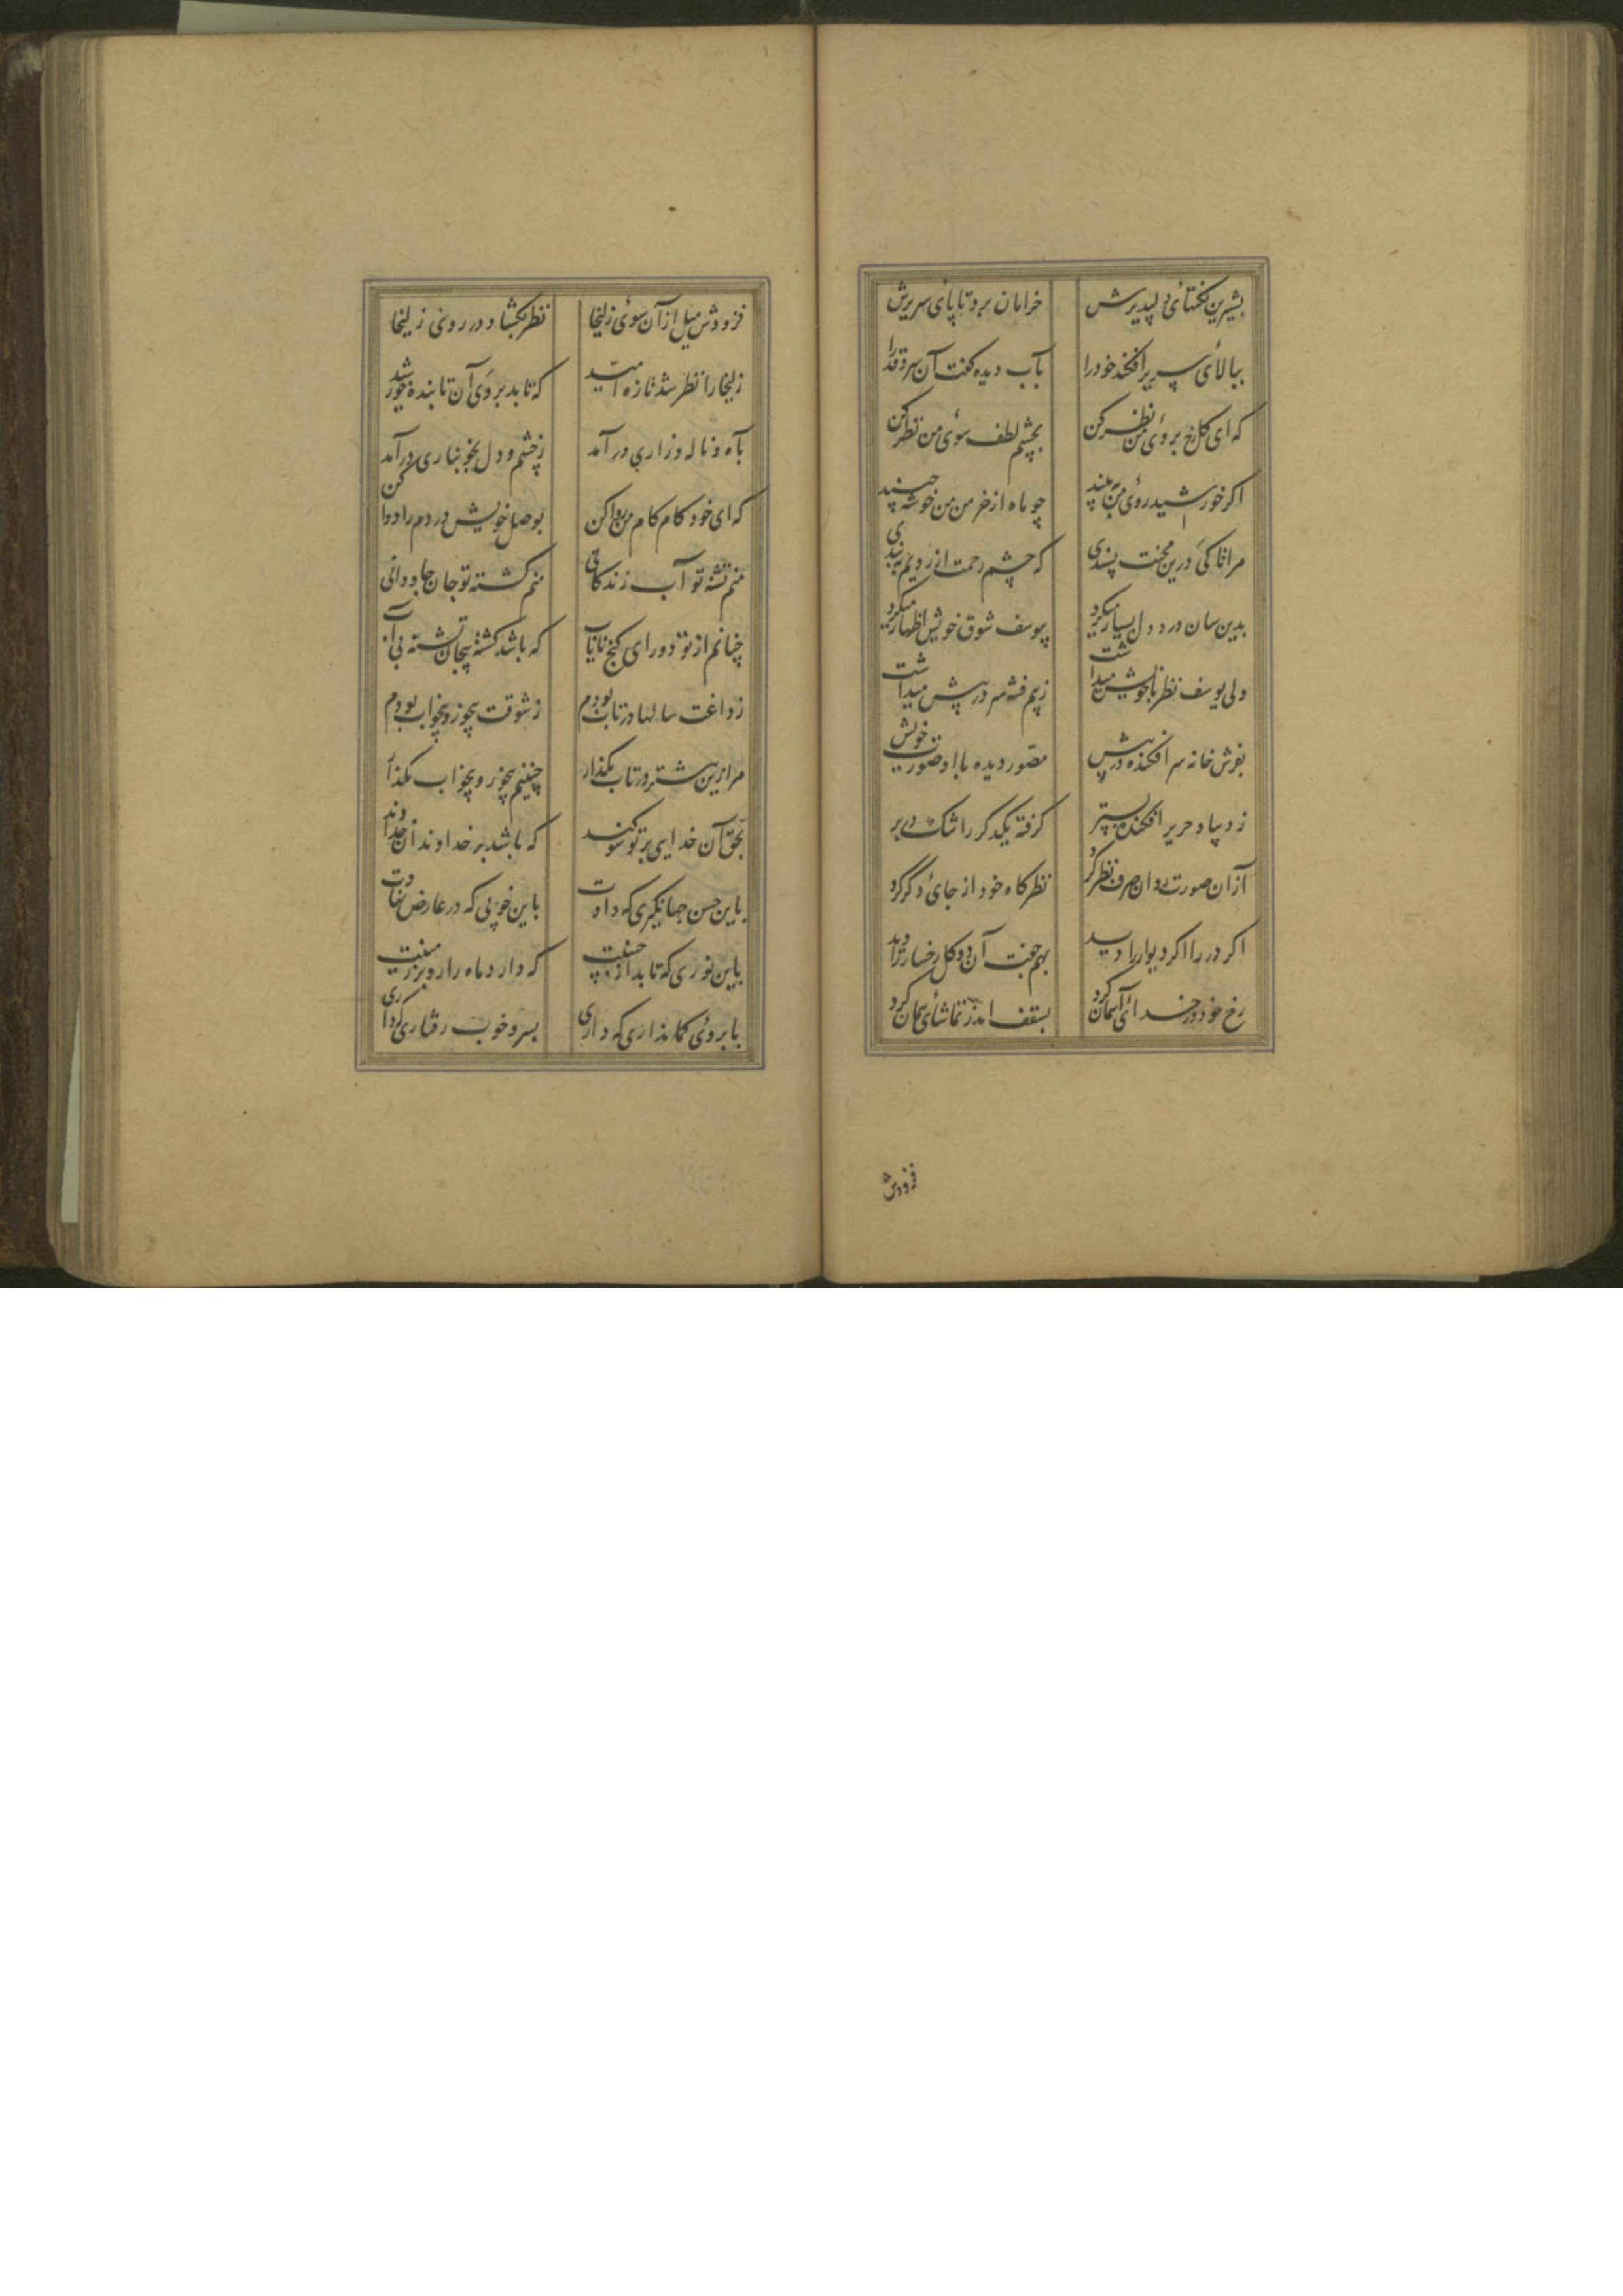 بشیرین نکتهای دلپذیرش خرامان برد تا پای سریرش
ببالای سریر افکند خود را بآب دیده گفت آن سرو قد را
که ای گلرخ بروی من نظر کن بچشم لطف سوی من نظر کن
اگر خورشید روی من به بیند چو ماه از خرمن من خوشه چیند
مرا تا کی درین محنت پسندی که چشم رحمت از رویم به بندی
بدین سان درد دل بسیار میکرد بیوسف شوق خویش اظهار میکرد
ولی یوسف نظر با خویش میداشت ز بیم فتنه سر در پیش میداشت
بفرش خانه سر افکنده در پیش مصور دیده با او صورت خویش
ز دیبا و حریر افکنده بستر گرفته یکدگر را تنگ در بر
از آن صورت روان صرف نظر کرد نظرگاه خود از جای دگر کرد
اگر در را اگر دیوار را دید بهم جفت آن دو گل رخسار را دید
رخ خود در خدای آسمان کرد بسقف اندر تماشای همان کرد
فزودش
فزودش میل از آن سوی زلیخا نظر بگشاد در روی زلیخا
زلیخا را نظر شد تازه امید که تابد بروی آن تابنده خورشید
بآه و ناله و زاری در آمد ز چشم و دل بخونباری در آمد
که ای خود کام کام من روا کن بوصل خویش دردم را دوا کن
منم تشنه تو آب زندگانی منم کشته تو جان جاودانی
چنانم از تو دور ای گنج نایاب که باشد کشته بیجان تشنه بی آب
ز داغت سالها در تاب بودم ز شوقت بیخور و بیخواب بودم
مرا زین بیشتر در تاب مگذار چنینم بیخور و بیخواب مگذار
بحق آن خدایی بر تو سوگند که باشد بر خداوندان خداوند
باین حسن جهانگیری که دادت باین خوبی که در عارض نهادت
باین نوری که تابد از جبینت که دارد ماه را رو بر زمینت
بابروی کمانداری که داری بسرو خوب رفتاری که داری